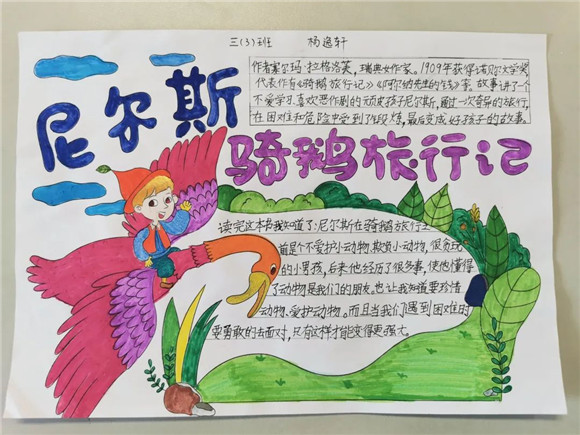 三(3)班 杨逸轩
尼尔斯
骑鹅旅行记
作者塞尔玛·拉格洛芙，瑞典女作家。1909年获得诺贝尔文学奖
代表作有《骑鹅旅行记》《阿尔纳先生的钱》等。故事讲了一个
不爱学习.喜欢恶作剧的顽皮孩子尼尔斯，通过一次奇异的旅行，
在困难和危险中受到了锻炼，最后变成好孩子的故事。
读完这本书我知道了：尼尔斯在骑鹅旅行之
前是个不爱护小动物.欺负小动物，很贪玩
的小男孩，后来他经历了很多事，使他懂得
了动物是我们的朋友，也让我知道要珍惜
动物、爱护动物。而且当我们遇到困难时
要勇敢的去面对，只有这样才能变得更强大。